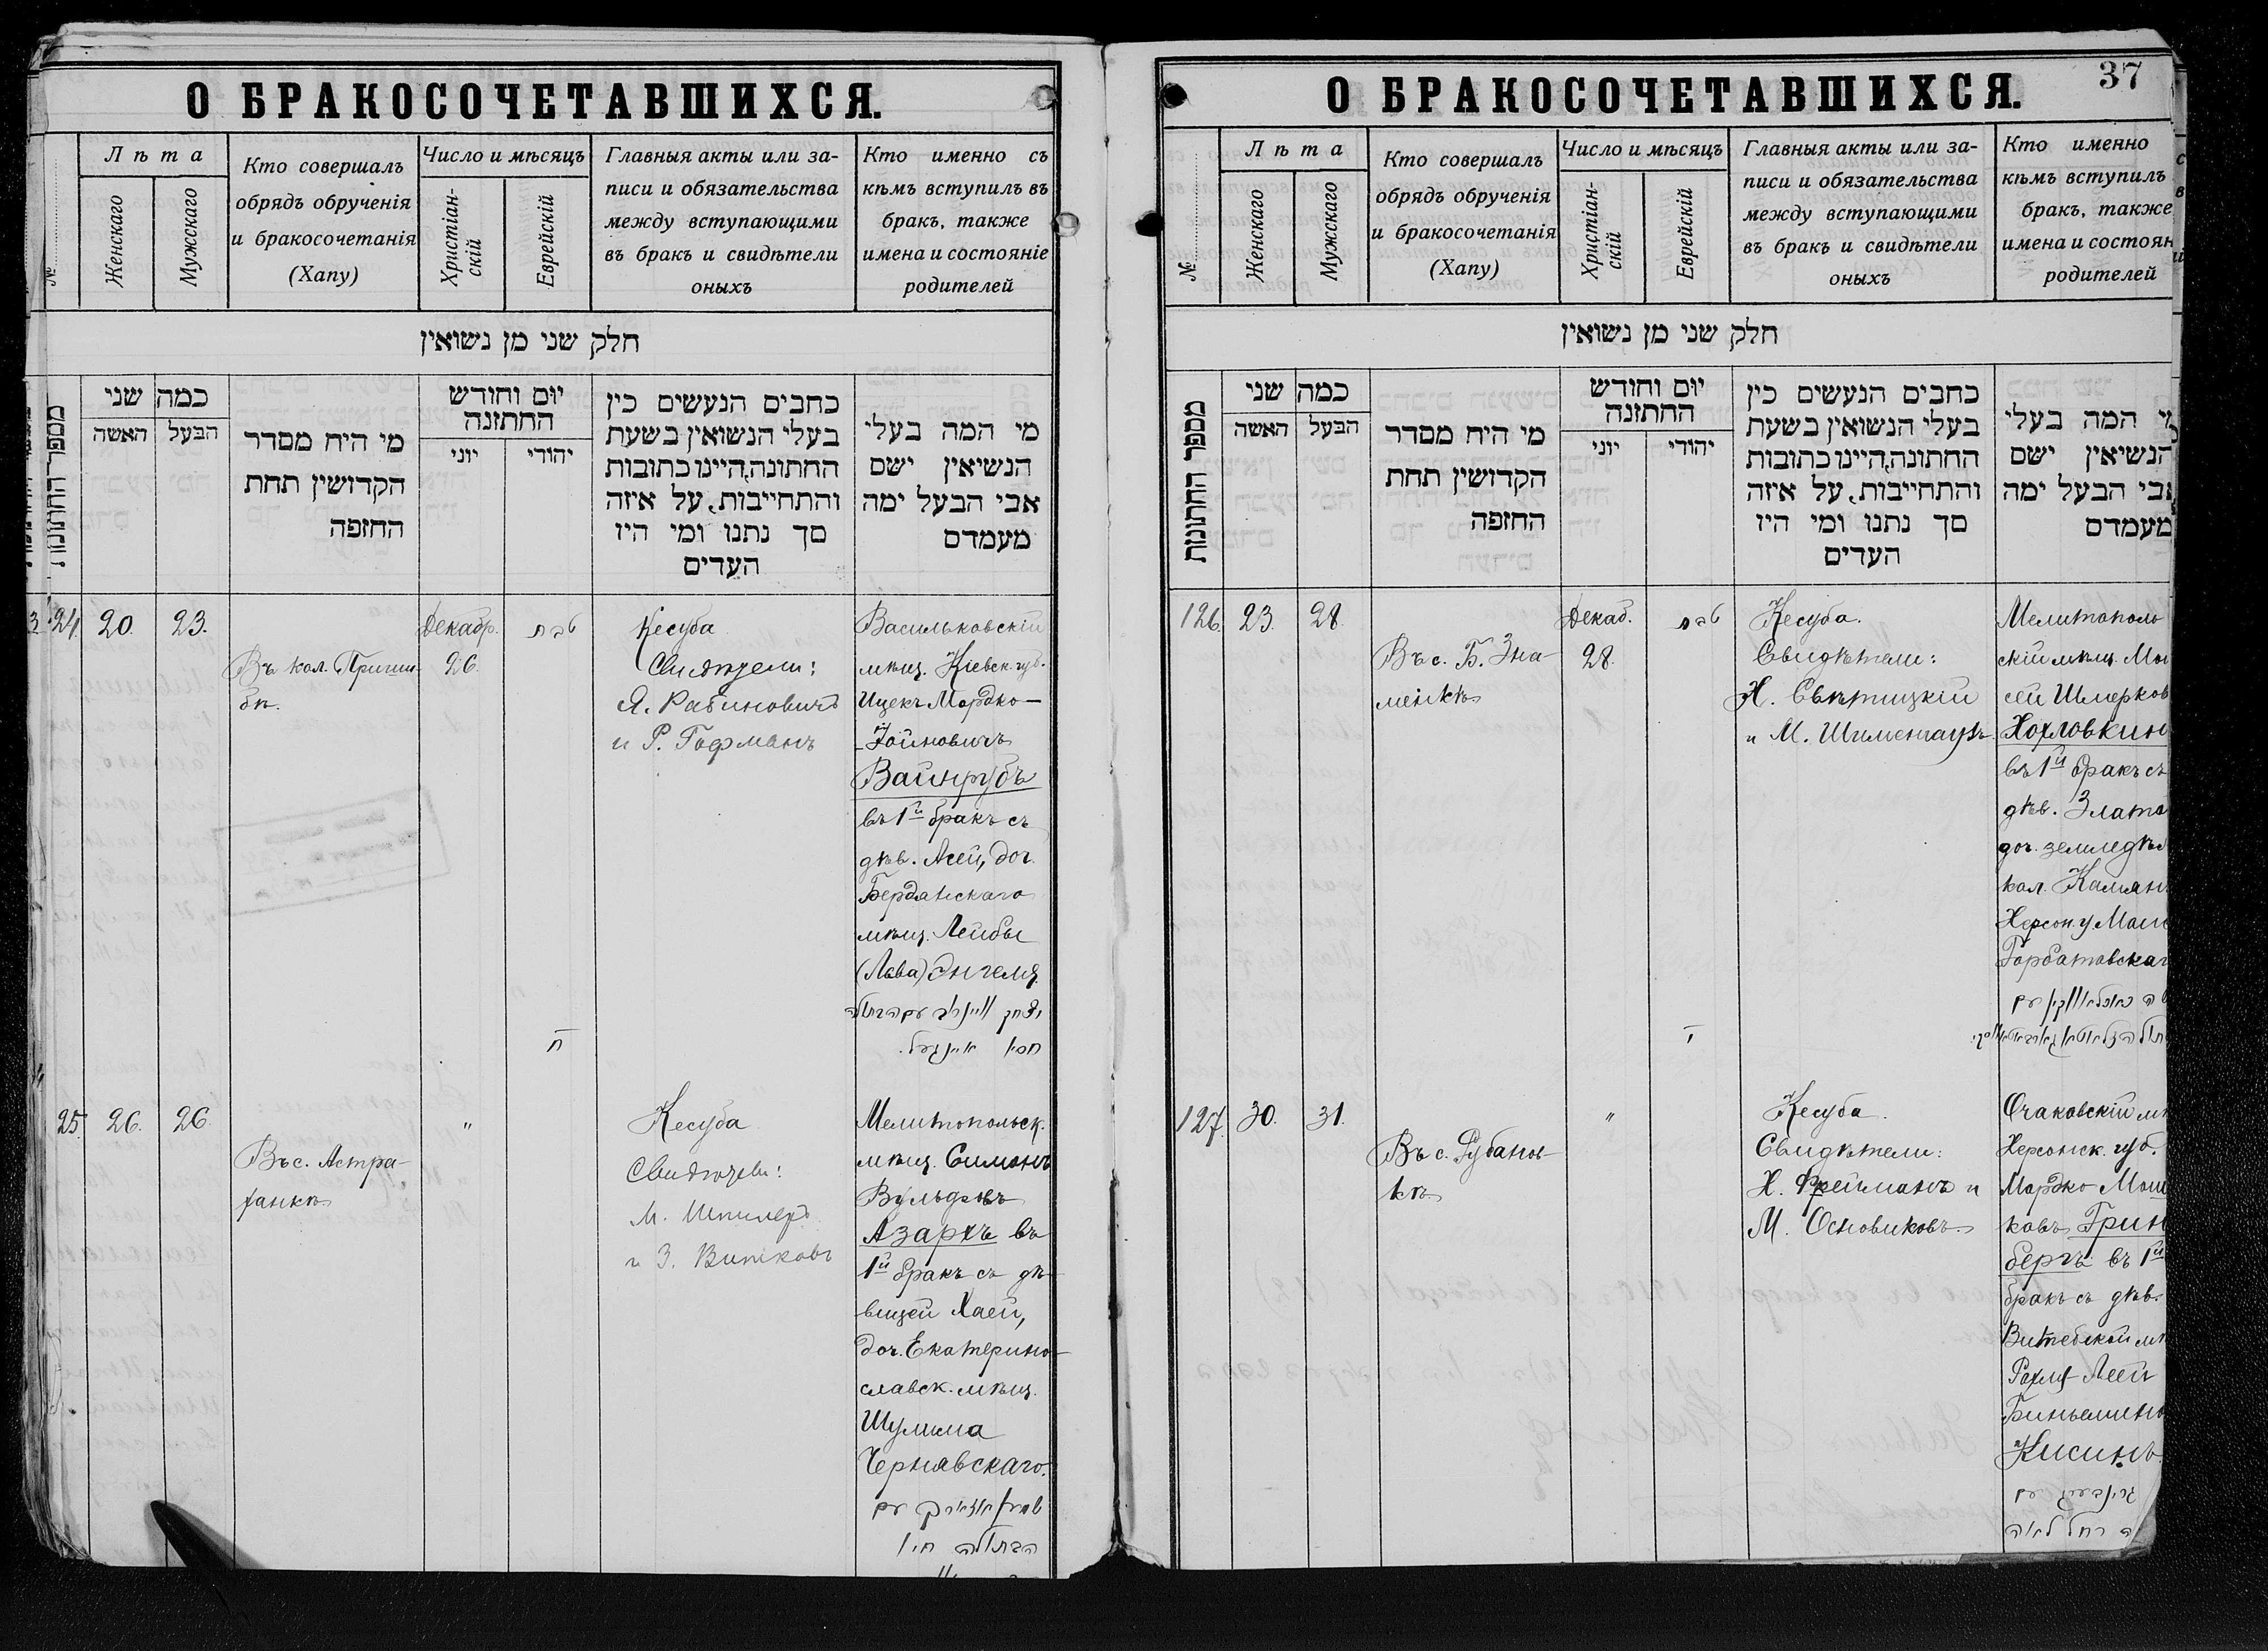 О БРАКОСОЧЕТАВШИХСЯ.
№
Лѣта
Женскаго
Мужскаго
Кто совершалъ
обрядъ обрученія
и бракосочетанія
(Хапу)
Число и мѣсяцъ
Христіан-
скій
Еврейскій
Главныя акты или за-
писи и обязательства
между вступающими
въ бракъ и свидѣтели
оныхъ
Кто именно съ
кѣмъ вступилъ въ
бракъ, также
имена и состояніе
родителей
חלק שני מן נשואין
מספר החתונות
כמה שני
האשה
הבעל
מי היח מסדר
הקדושין תחת
החופה
יום וחודש
החתונה
יוני
יהודי
כחבים הנעשים כין
בעלי הנשואין בשעת
החתונה, היינו כתובות
והתחייבות, על איזה
סך נתנו ומי היו
העדים
מי המה בעלי
הנשיאין ישם
אבי הבעל ימה
מעמדם
24.
20.
23.
Въ кол. Пришы-
бѣ.
Декабр.
26.
טבת
ח
Кесуба
Свидѣтели:
Я. Рабиновичъ
и Р. Гофманъ
Васильковскій
мѣщ. Кіевск. губ.
Ицекъ Мордко-
-Іойновичъ
Вайнрубъ
въ 1й бракъ съ
дѣв. Асей, доч.
Бердянскаго
мѣщ. Лейбы
(Льва) Энгеля.
יצחק וויינרוב עם הבתולה
חסיא אייגעל.
25.
26.
26.
Въ с. Астра-
ханкѣ
"
Кесуба
Свидѣтели:
М. Шпилеръ
и З. Витковъ
Мелитопольск.
мѣщ. Симонъ
Вульфовъ
Азархъ въ
1й бракъ съ дѣ-
вицей Хаей,
доч. Екатерино-
славск. мѣщ.
Шулима
Чернявскаго.
שמעון אזארק עם
הבתולה חיה
О БРАКОСОЧЕТАВШИХСЯ.
37
№
Лѣта
Женскаго
Мужскаго
Кто совершалъ
обрядъ обрученія
и бракосочетанія
(Хапу)
Число и мѣсяцъ
Христіан-
скій
Еврейскій
Главныя акты или за-
писи и обязательства
между вступающими
въ бракъ и свидѣтели
оныхъ
Кто именно
кѣмъ вступилъ
бракъ, также
имена и состоян
родителей
חלק שני מן נשואין
מספר החתונות
כמה שני
האשה
הבעל
מי היח מסדר
הקדושין תחת
החופה
יום וחודש
החתונה
יוני
יהודי
כחבים הנעשים כין
בעלי הנשואין בשעת
החתונה, היינו כתובות
והתחייבות, על איזה
סך נתנו ומי היו
העדים
מי המה בעלי
הנשיאין ישם
אבי הבעל ימה
מעמדם
126.
23.
28.
Въ с. Б. Зна-
менкѣ
Декаб.
28.
טבת
י
Кесуба.
Свидѣтели:
Х. Свѣтицкій
и М.
Мелитополь
скій мѣщ. Мои
сей Шмерков
Хохловкин
въ 1й бракъ съ
дѣв. Злато
доч. земледѣл
кол. Камян
Херсон. у.
Горбатовскаг
127.
30.
31.
Въ с. Рубанов-
кѣ
"
Кесуба.
Свидѣтели:
Х. Фрейманъ и
М. Основиковъ.
Очаковскій мѣ
Херсонск. губ.
Мордко Мош
ковъ Грин
бергъ въ 1й
бракъ съ дѣв.
Витебской мѣ
Рохля-Леей
Биньямино
Кисинъ.
גרינבערג עם
רחל לאה